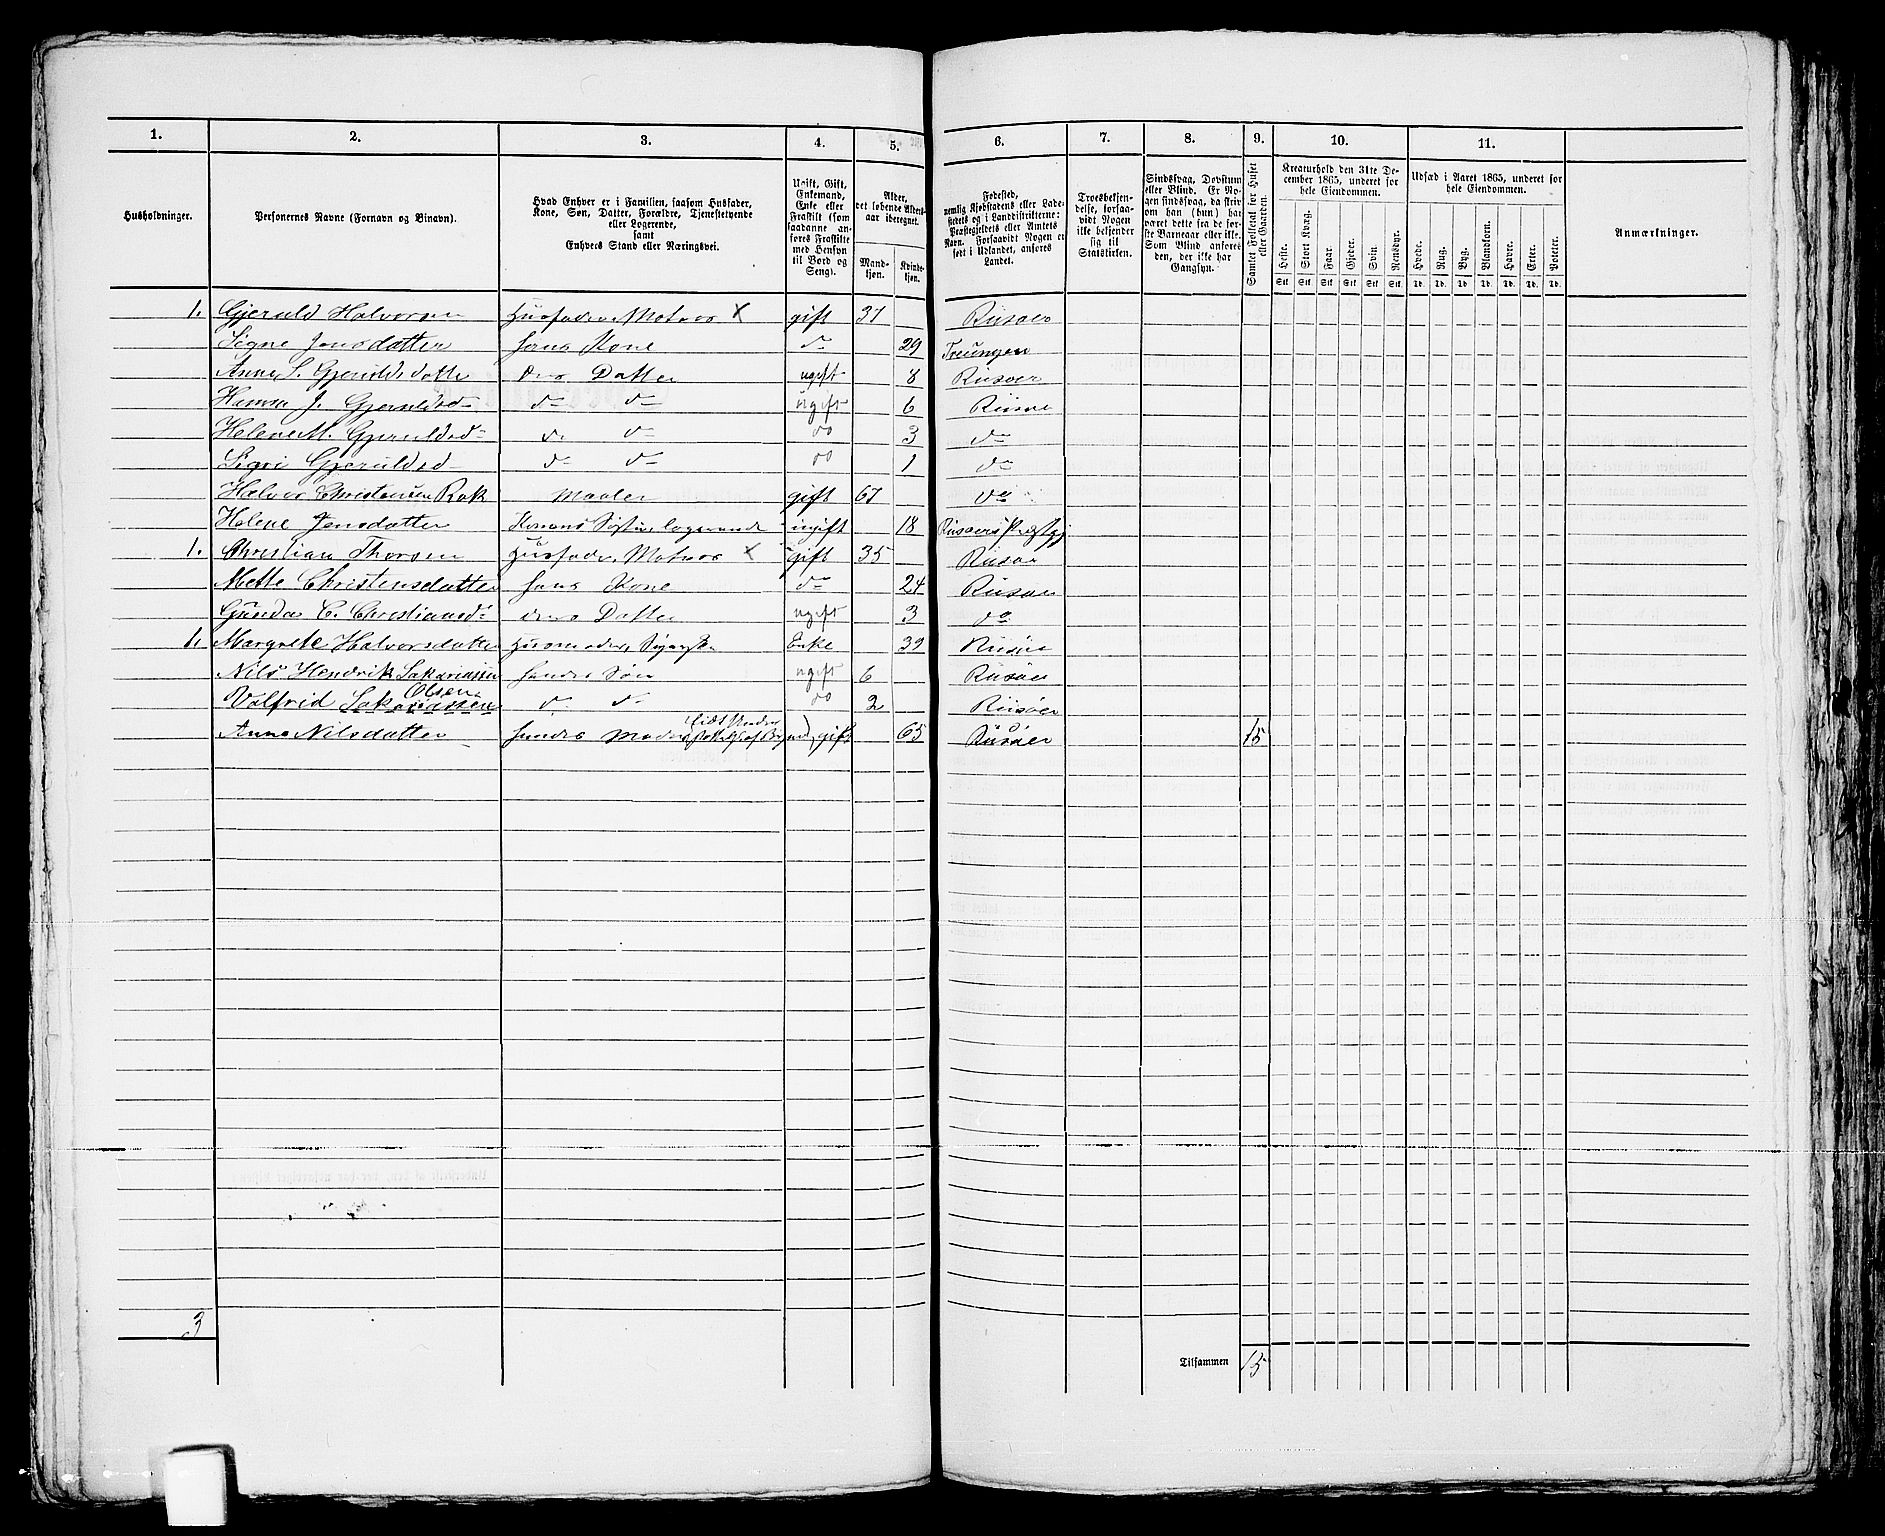 1. 2. 3. 4. 5. 6. 7. 8. 9. 10. 11.
Husholdninger.
Personernes Navne (Fornavn og Binavn).
Hvad Enhver er i Familien, saasom Husfader, Kone, Søn, Datter, Forældre, Tjenestetyende eller Logerende, samt Enhvers Stand eller Næringsvei.
Ugift, Gift, Enkemand, Enke eller Fraskilt (som saadanne anføres Fraskilte med Hensyn til Bord og Seng).
Alder, det løbende Aldersaar iberegnet.
Mandkjøn. Kvindekjøn.
Fødested, nemlig Kjøbstadens eller Ladestedets og i Landdistrikterne: Præstegjeldets eller Amtets Navn. Forsaavidt Nogen er født i Udlandet, anføres Landet.
Troesbekjendelse, forsaavidt Nogen ikke bekjender sig til Statskirken.
Sindssvag, Døvstum eller Blind. Er Nogen sindssvag, da skriv om han (hun) har været dette fra de første Barneaar eller ikke. Som Blind anføres den, der ikke har Gangsyn.
Samlet Folketal for Huset eller Gaarden.
Kreaturhold den 31te December 1865, underet for hele Eiendommen.
Heste. Stort Kvæg. Faar. Gjeder. Svin. Rensdyr.
Udsæd i Aaret 1865, underet for hele Eiendommen.
Hvede. Rug. Byg. Blandkorn. Havre. Erter. Poteter.
Anmærkninger.
Stk. Stk. Stk. Stk. Stk. Stk. Td. Td. Td. Td. Td. Td. Td.
1. Gjeruld Halvorsen Husfader, Matros X gift 37 Riisøer
Signe Jensdatter hans Kone do 29 Treungen
Anne S. Gjeruldsdatter deres Datter ugift 8 Riisøer
Hanna J. Gjeruldsd do do ugift 6 Riisøe
Helene M. Gjeruldsd do do do 3 do
Sigri Gjeruldsd do do do 1 do
Halvor Christensen Rok Maaler gift 67 do
Helene Jensdatter Konens Søster, logerende ugift 18 Riisøers Præstgj
1. Christian Thorsen Husfader, Matros X gift 35 Riisøer
Mette Christensdatter hans Kone do 24 Riisøer
Gunda C. Christiansd deres Datter ugift 3 do
1. Margrete Halvorsdatter Husmoder, Enke 39 Riisøer
Nils Hendrik Sakariassen hendes Søn ugift 6 Riisøer
Olsen
Valfrid Sakariassen do do do 2 Riisøer
Anne Nilsdatter hendes Moder gift 65 Riisøer 15
3
Tilsammen 15